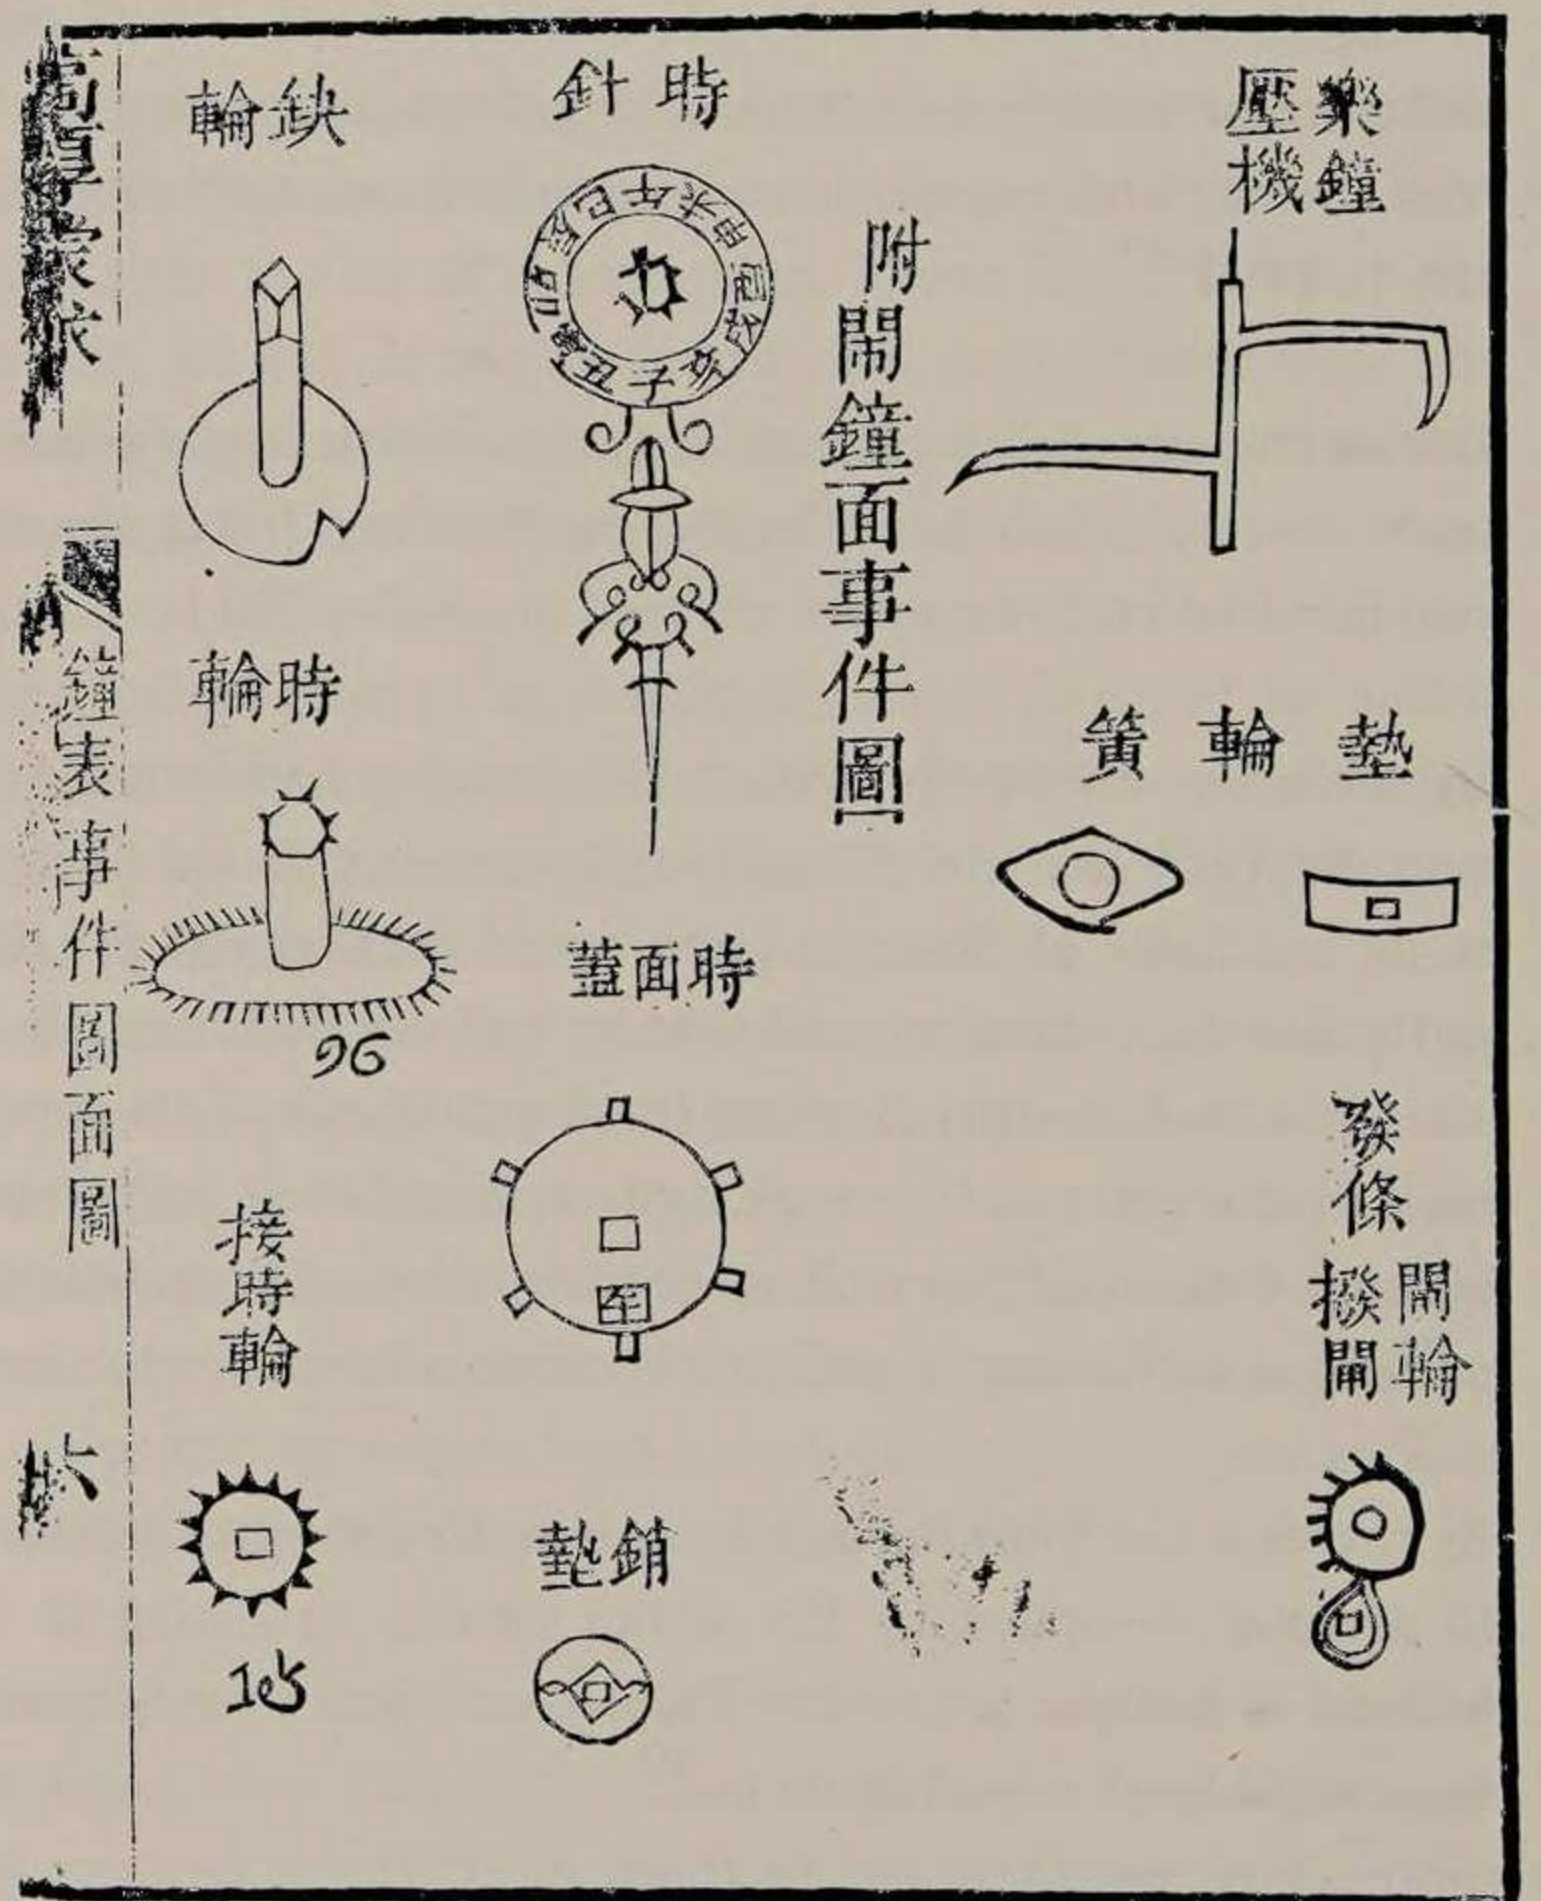 樂鐘
壓機
墊輪簧
發條
閙輪
撥閘
附閙鐘面事件圖
時針
子丑寅卯辰巳午未申酉戌亥
時面蓋
銷墊
缺輪
時輪
96
接時輪
15
高厚蒙求
鐘表事件圖面圖
六